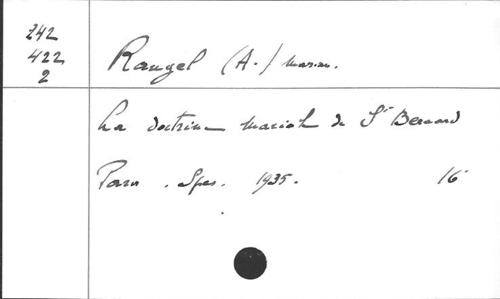 242
422
2
Raugel (A.) marian.
La doctrine mariale de St Bernard
Paris. Spes. 1935. 16